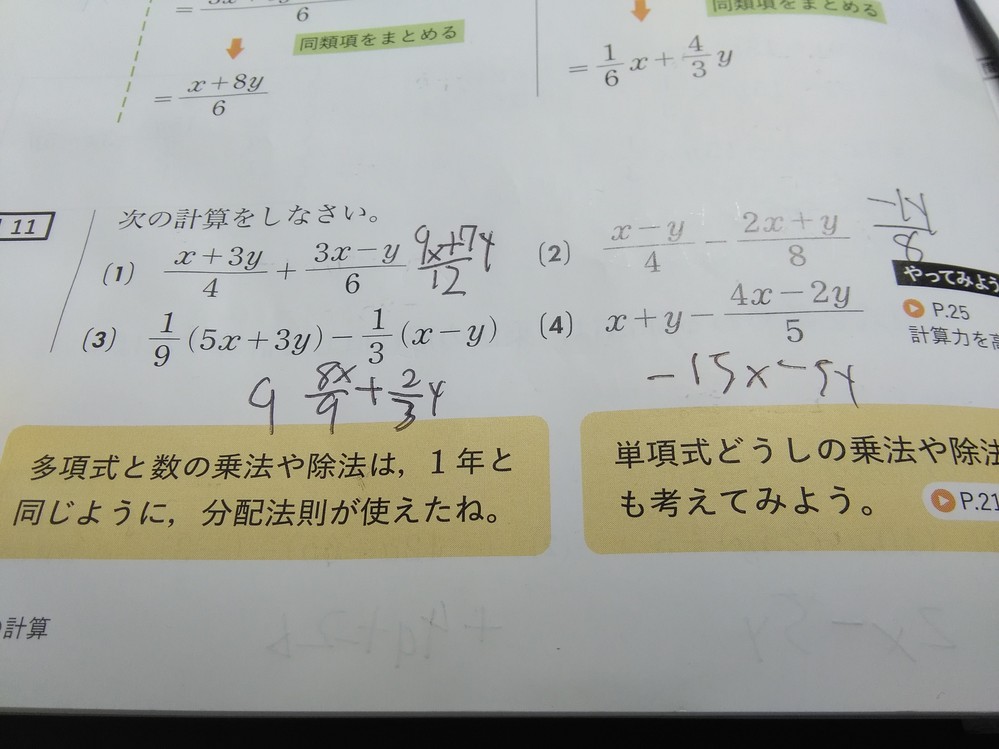 6
同類項をまとめる
同類項をまとめる
= x+8y/6
= 1/6 x + 4/3 y
11 次の計算をしなさい。
(1) x+3y/4 + 3x-y/6 9x+7y/12
(2) x-y/4 - 2x+y/8 -1y/8
やってみよう
P.25
計算力を高
(3) 1/9 (5x+3y) - 1/3 (x-y)
(4) x+y- 4x-2y/5
9 8x/9 + 2/3 y
-15x-5y
多項式と数の乗法や除法は，1年と
同じように，分配法則が使えたね。
単項式どうしの乗法や除法
も考えてみよう。
P.21
計算